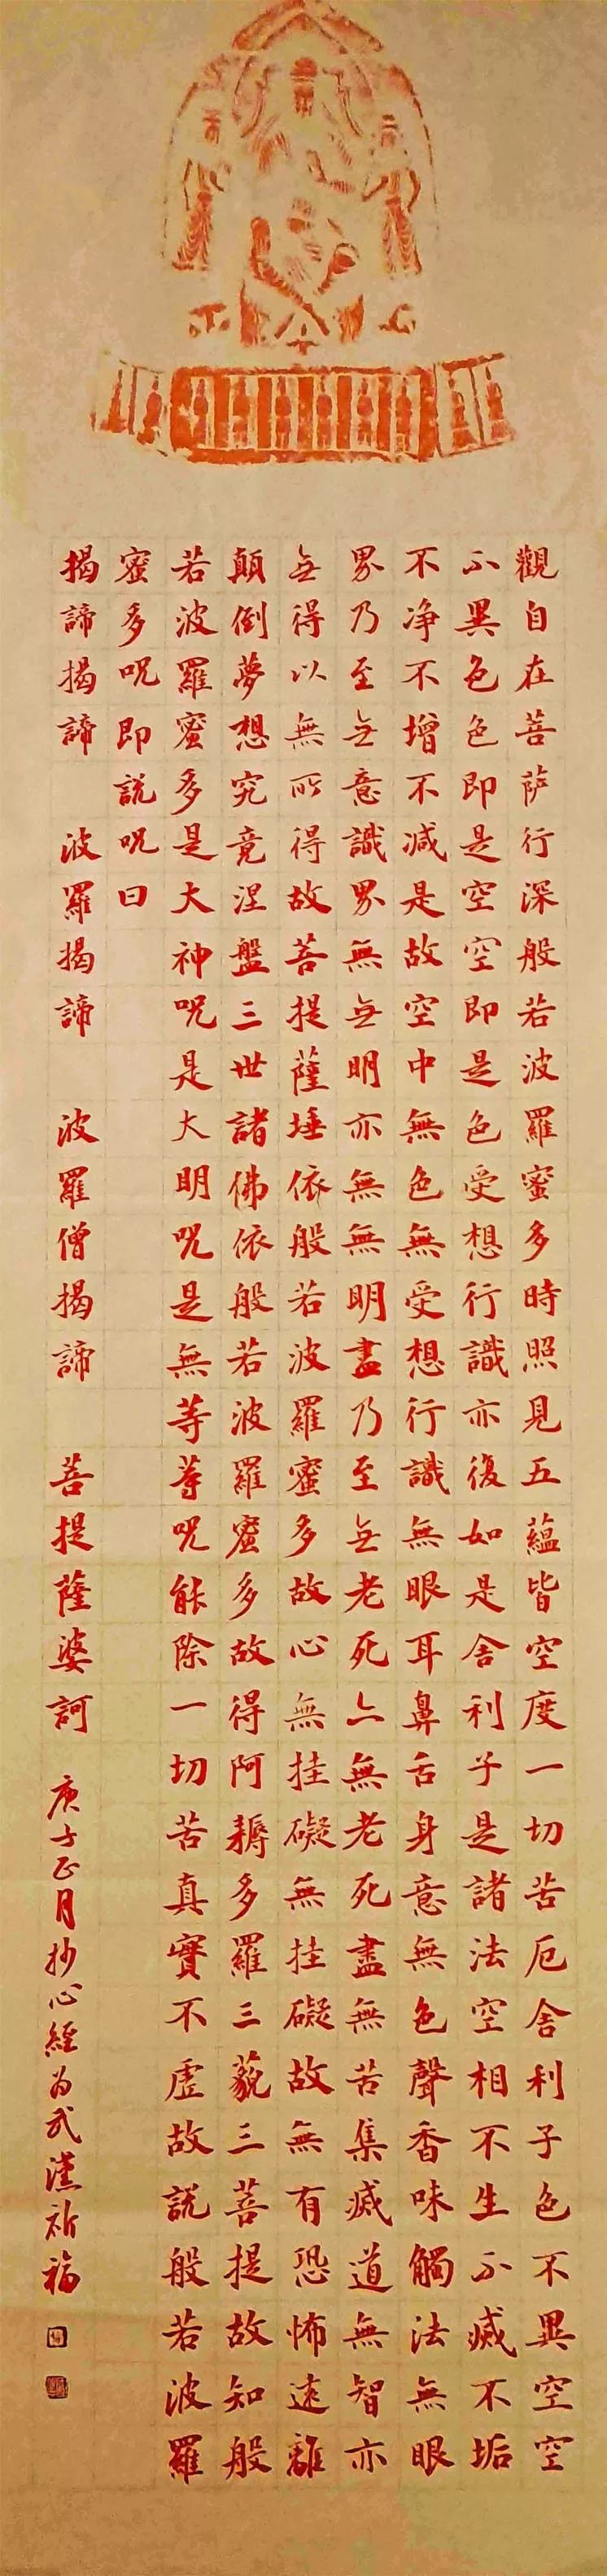 觀自在菩萨行深般若波羅蜜多時照見五蘊皆空度一切苦厄舍利子色不異空空
不異色色即是空空即是色受想行識亦復如是舍利子是諸法空相不生不滅不垢
不净不增不减是故空中無色無受想行識無眼耳鼻舌身意無色聲香味觸法無眼
界乃至无意識界無无明亦無無明盡乃至无老死亦無老死盡無苦集滅道無智亦
无得以無所得故菩提薩埵依般若波羅蜜多故心無挂礙無挂礙故無有恐怖遠離
顛倒夢想究竟涅盤三世諸佛依般若波羅蜜多故得阿耨多羅三藐三菩提故知般
若波羅蜜多是大神呪是大明呪是無等等呪能除一切苦真實不虛故説般若波羅
蜜多呪即説呪曰
揭諦揭諦 波羅揭諦 波羅僧揭諦 菩提薩婆訶 庚子正月抄心經为武漢祈福